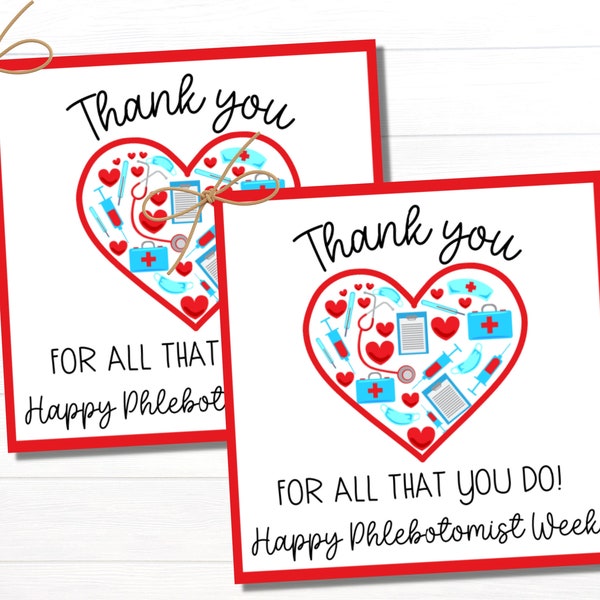 Thank you
FOR ALL THAT
Happy
Thank you
FOR ALL THAT YOU DO!
Happy Phlebotomist Week